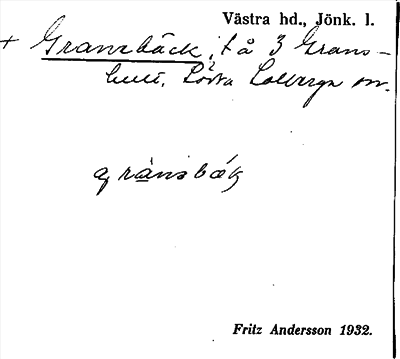 Västra hd., Jönk. l.
+ Gransbäck, i, tå 3 Grans-
hult, Södra Solberga sn.
gránsbæk
Fritz Andersson 1932.